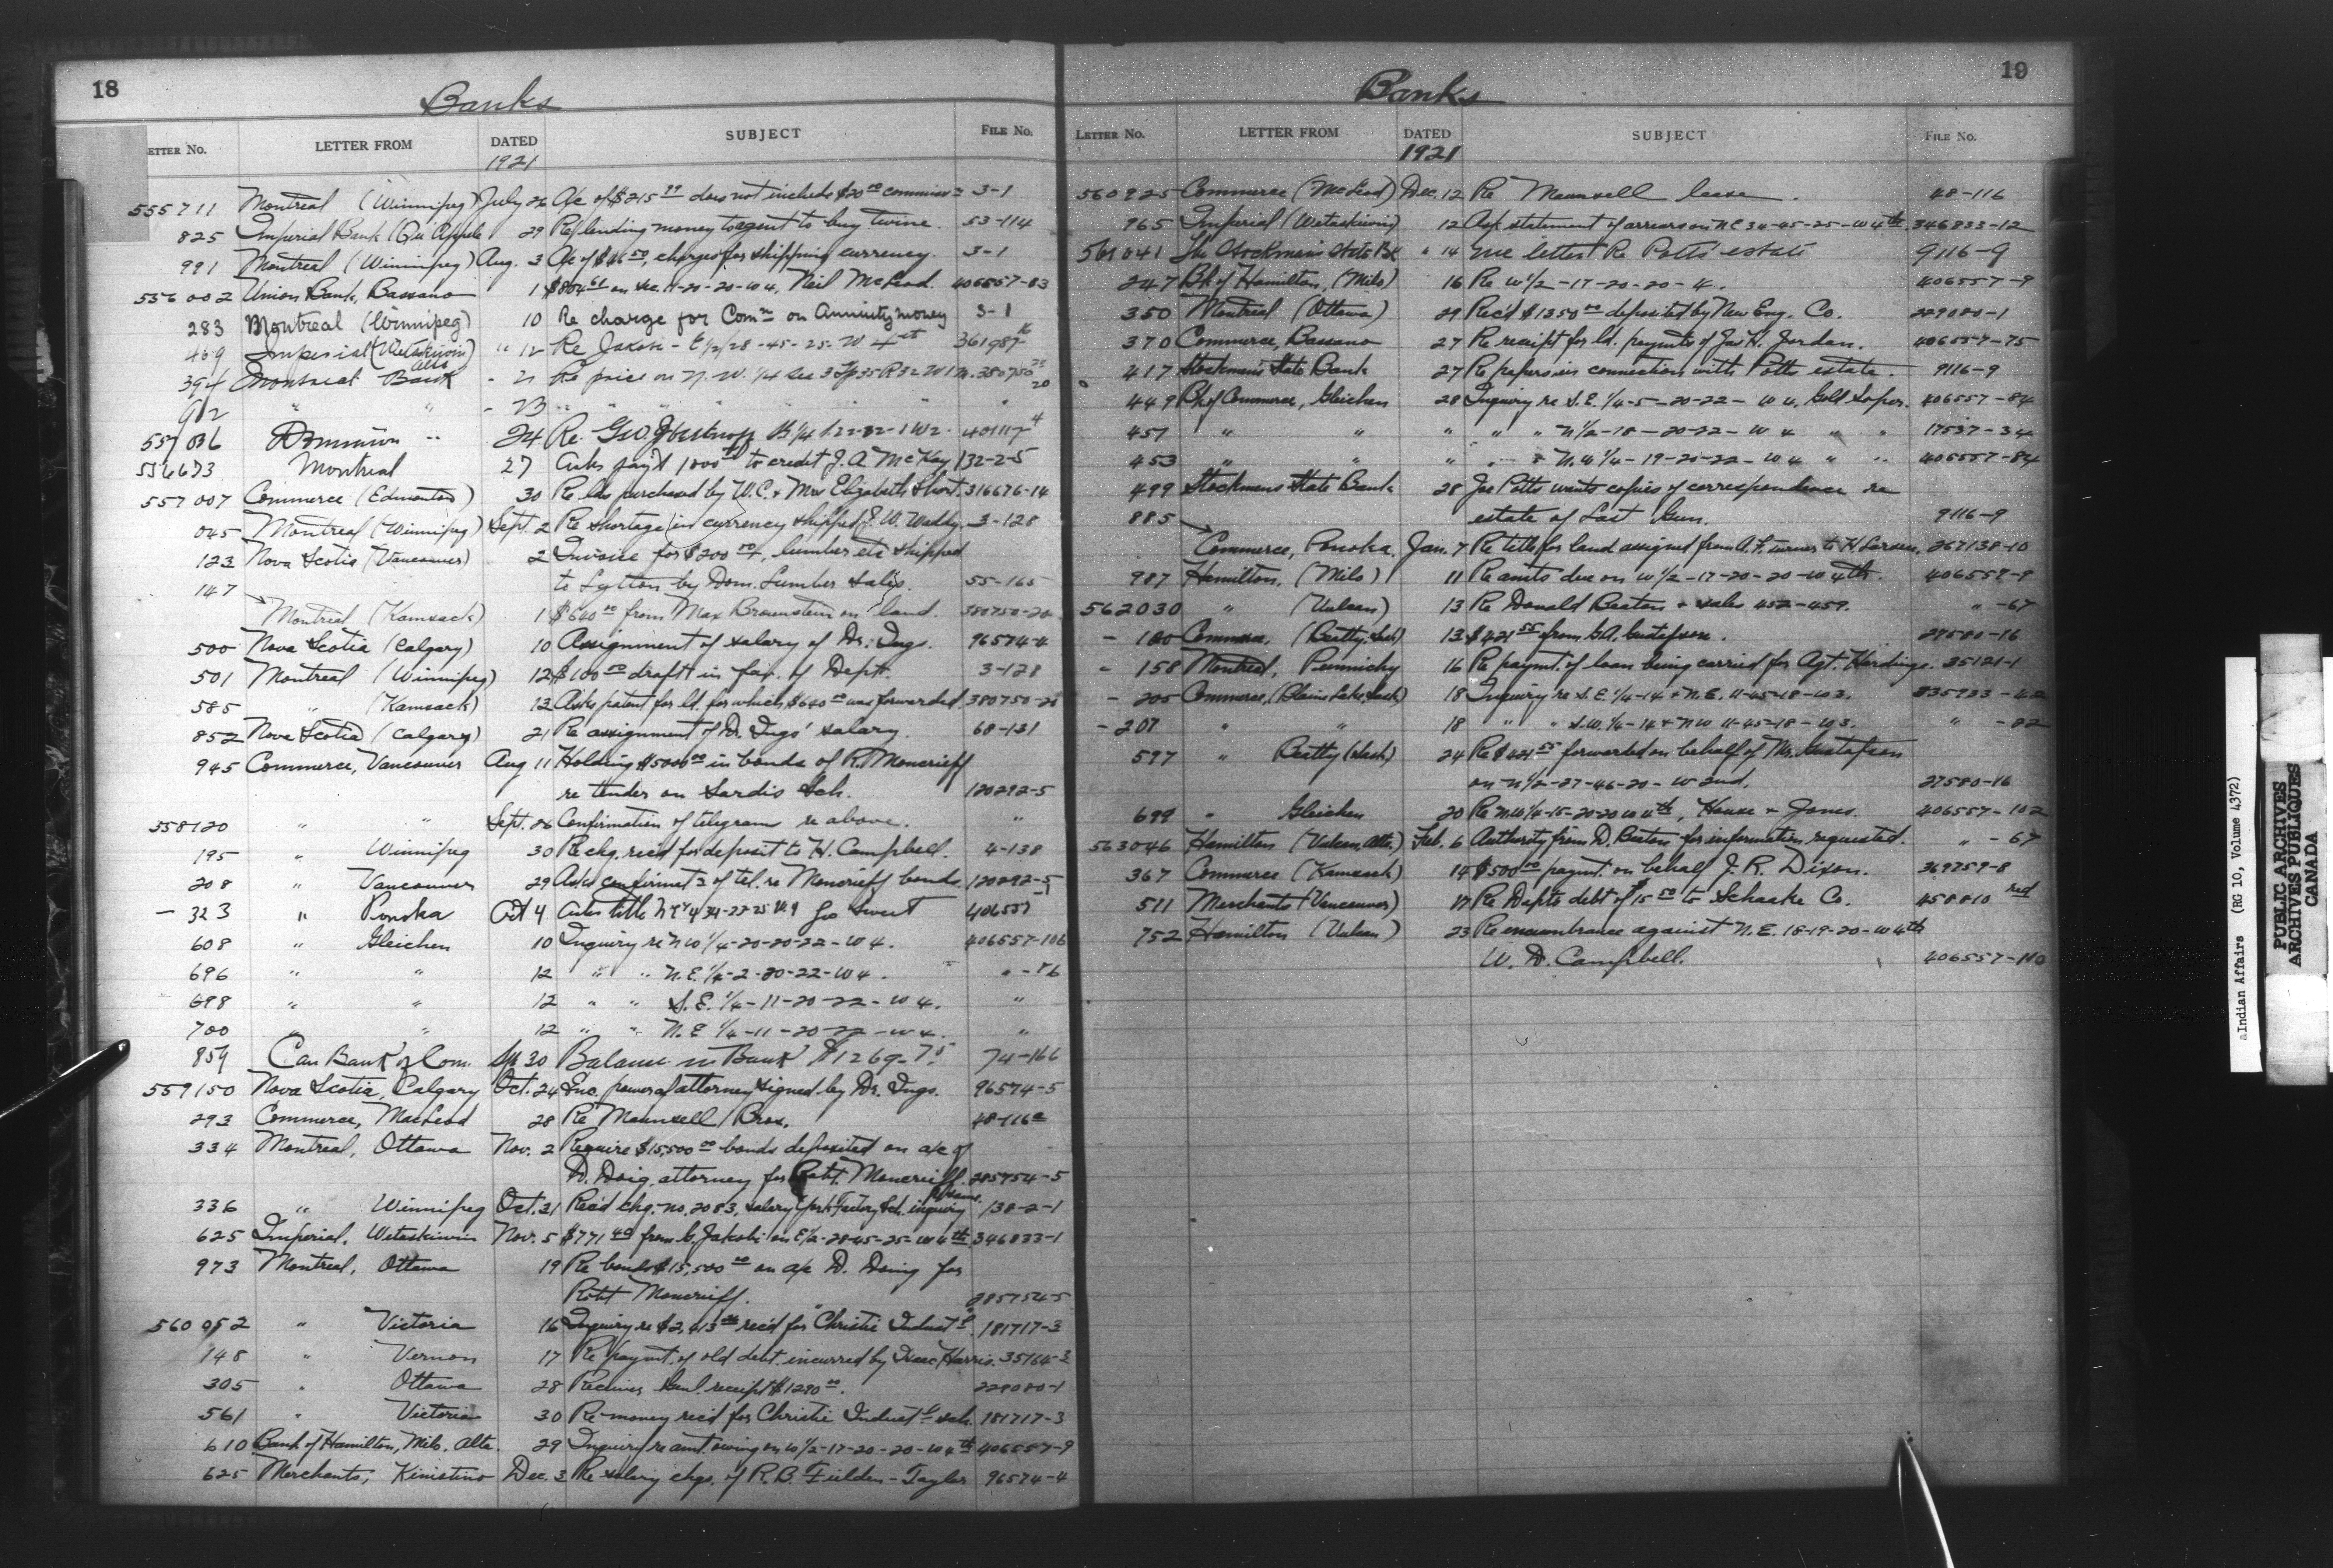 18
Banks
ETTER No. LETTER FROM DATED SUBJECT FILE No.
1921
555711 Montreal (Winnipeg) July 26 A/c of $215 does not include $20 00 3-1
825 Imperial Bank (Qu'Appelle 29 Re lending money to agent to buy twine. 53-114
991 Montreal (Winnipeg) Aug. 3 A/c of charges for shipping currency. 3-1
556002 Union Bank, Bassano 1 on Sec. 11-20-20-W4, Neil McLeod. 406557-83
283 Montreal (Winnipeg) 10 Re charge for Comn on Annuity money 3-1
469 Imperial (Wetaskiwin) Alta " 12 Re Jakobi - E 1/2/28-45-25-W 4th 361987
394 Montreal Bank " 21 Re price on N.W. 1/4 Sec 3 Tp 35 R 32 W1M. 380750
902 " " - 23 " " " "
557036 Dominion " 24 Re. Geo. 401117
556673 Montreal 27 Asks pay't to credit J. A. McKay 132-2-5
557007 Commerce (Edmonton) 30 Re lds purchased by W.C. + Mrs Elizabeth Short. 316676-14
045 Montreal (Winnipeg) Sept. 2 Re shortage in currency shipped J. W. Waddy. 3-128
123 Nova Scotia (Vancouver) 2 Invoice for $200 00, lumber etc shipped
to Lytton by Dom. Lumber Sales. 55-165
147
Montreal (Kamsack) 1 $640 00 from Max Brownstein on land. 380750-20
500 Nova Scotia (Calgary) 10 Assignment of salary of Dr. Ings. 96574-4
501 Montreal (Winnipeg) 12 $100 00 draft in fav. of Dept. 3-128
585 " (Kamsack) 13 Asks patent for ld. for which $640 00 was forwarded. 380750-20
852 Nova Scotia (Calgary) 21 Re assignment of D. Ings' salary. 68-131
945 Commerce, Vancouver Aug 11 Holding $5000 00 in bonds of R. Moncrieff
re tender on Sardis Sch. 120292-5
558120 " " Sept. 26 Confirmation of telegram re above. "
195 " Winnipeg 30 Re chq. rec'd for deposit to H. Campbell. 4-138
208 " Vancouver 29 Asks confirmatn of tel. re Moncrieff bonds. 120292-5
- 323 " Ponoka Oct 4 Asks title 406557
608 " Gleichen 10 Inquiry re N W 1/4-20-20-22-W 4. 406557-106
696 " " 12 " " N.E. 1/4-2-20-22-W 4. " -86
698 " " 12 " " S.E. 1/4-11-20-22-W 4. "
700 " " 12 " " N.E 1/4-11-20-22-W 4. "
859 Can Bank of Com. Sep 30 Balance in Bank $1269.75 74-166
559150 Nova Scotia, Calgary Oct. 24 Enc. power of attorney signed by Dr. Ings. 96574-5
293 Commerce, MacLeod 28 Re Maunsell Bros. 48-116
334 Montreal, Ottawa Nov. 2 Require $15,500 00 bonds deposited on a/c of
D. Doig, attorney for Robt. Moncrieff. 285754-5
336 " Winnipeg Oct. 21 Rec'd chq. no. 2083, salary York Factory Sch. inquiry 138-2-1
625 Imperial, Wetaskiwin Nov. 5 $771 49 from G. Jakobi on E1/2-28-45-25-W 4th 346833-1
973 Montreal, Ottawa 19 Re bonds $15,500 00 on a/c D. Doing for
Robt Moncrieff. 285754-5
560052 " Victoria 16 Inquiry re rec'd for "Christie Indust'l" 181717-3
148 " Vernon 17 Re paymt. of old debt incurred by Isaac Harris. 35164-3
305 " Ottawa 28 Receiver Genl. receipt $1290 00. 229080-1
561 " Victoria 30 Re money rec'd for Christie Indust'l sch. 181717-3
610 Bank of Hamilton, Milo. Alta. 29 Inquiry re amt. owing on W 1/2-17-20-20-W 4th 406557-9
625 Merchants, Kinistino Dec. 3 Re salary chqs. of R. B. Fielden-Taylor 96574-4
19
Banks
LETTER No. LETTER FROM DATED SUBJECT FILE No.
1921
560925 Commerce (McLeod) Dec. 12 Re Maunsell lease. 48-116
965 Imperial (Wetaskiwin) 12 Ask statement of arrears on NE 34-45-25-W 4th. 346833-12
561041 The Stockmen's State Bk " 14 letter Re Potts' estate 9116-9
247 Bk of Hamilton, (Milo) 16 Re W 1/2-17-20-20-4. 406557-9
350 Montreal (Ottawa) 29 Rec'd $1350 00 deposited by New Eng. Co. 229080-1
370 Commerce, Bassano 27 Re receipt for ld. paymts of Jas. H. Jordan. 406557-75
417 Stockmen's State Bank 27 Re papers in connection with Potts estate. 9116-9
449 Bk of Commerce, Gleichen 28 Inquiry re S.E. 1/4-5-20-22-W 4, Gold Soper. 406557-84
451 " " " " " N 1/2-18-20-22-W 4 " " 17537-34
453 " " " " " N.W 1/4-19-20-22-W 4 " " 406557-84
499 Stockmens State Bank 28 Joe Potts wants copies of correspondence re
estate of Last Gun. 9116-9
885
Commerce, Ponoka. Jan. 7 Re title for land assigned from A. F. Turner to H. Larsen. 267138-10
987 Hamilton, (Milo) 11 Re amts due on W 1/2-17-20-20-W 4th. 406557-9
562030 " (Vulcan) 13 Re Donald Beaton + sales 452-459. " -67
- 100 Commerce, (Beatty, Sask) 13 $421 55 from G.A. Gustafson. 27580-16
- 158 Montreal, Penmichy 16 Re paymt. of loan being carried for Agt. Hardinge. 35121-1
- 205 Commerce, (Blaine Lake, Sask) 18 Inquiry re S.E. 1/4-14 + N.E. 11-45-18-W 3.
- 207 " " 18 " " S.W. 1/4-14 + NW 11-45-18-W 3. "
597 " Beatty (Sask) 24 Re $421 55 forwarded on behalf of Mr. Gustafson
on N 1/2-27-46-20-W 2nd. 27580-16
699 " Gleichen 20 Re N.W 1/4-15-20-20 W 4th, House + Jones. 406557-102
563046 Hamilton (Vulcan, Alta.) Feb. 6 Authority from D. Beaton for information requested. " -67
367 Commerce (Kamsack) 14 $500 00 paymt. on behalf J. R. Dixon. 369759-8
511 Merchants (Vancouver) 17 Re Depts debt of $15 50 to Schaake Co. 458810 red
752 Hamilton (Vulcan) 23 Re encumbrance against N.E. 18-19-20-W 4th
W. D. Campbell. 406557-110
aIndian Affairs (RG 10, Volume 4372)
PUBLIC ARCHIVES
ARCHIVES PUBLIQUES
CANADA